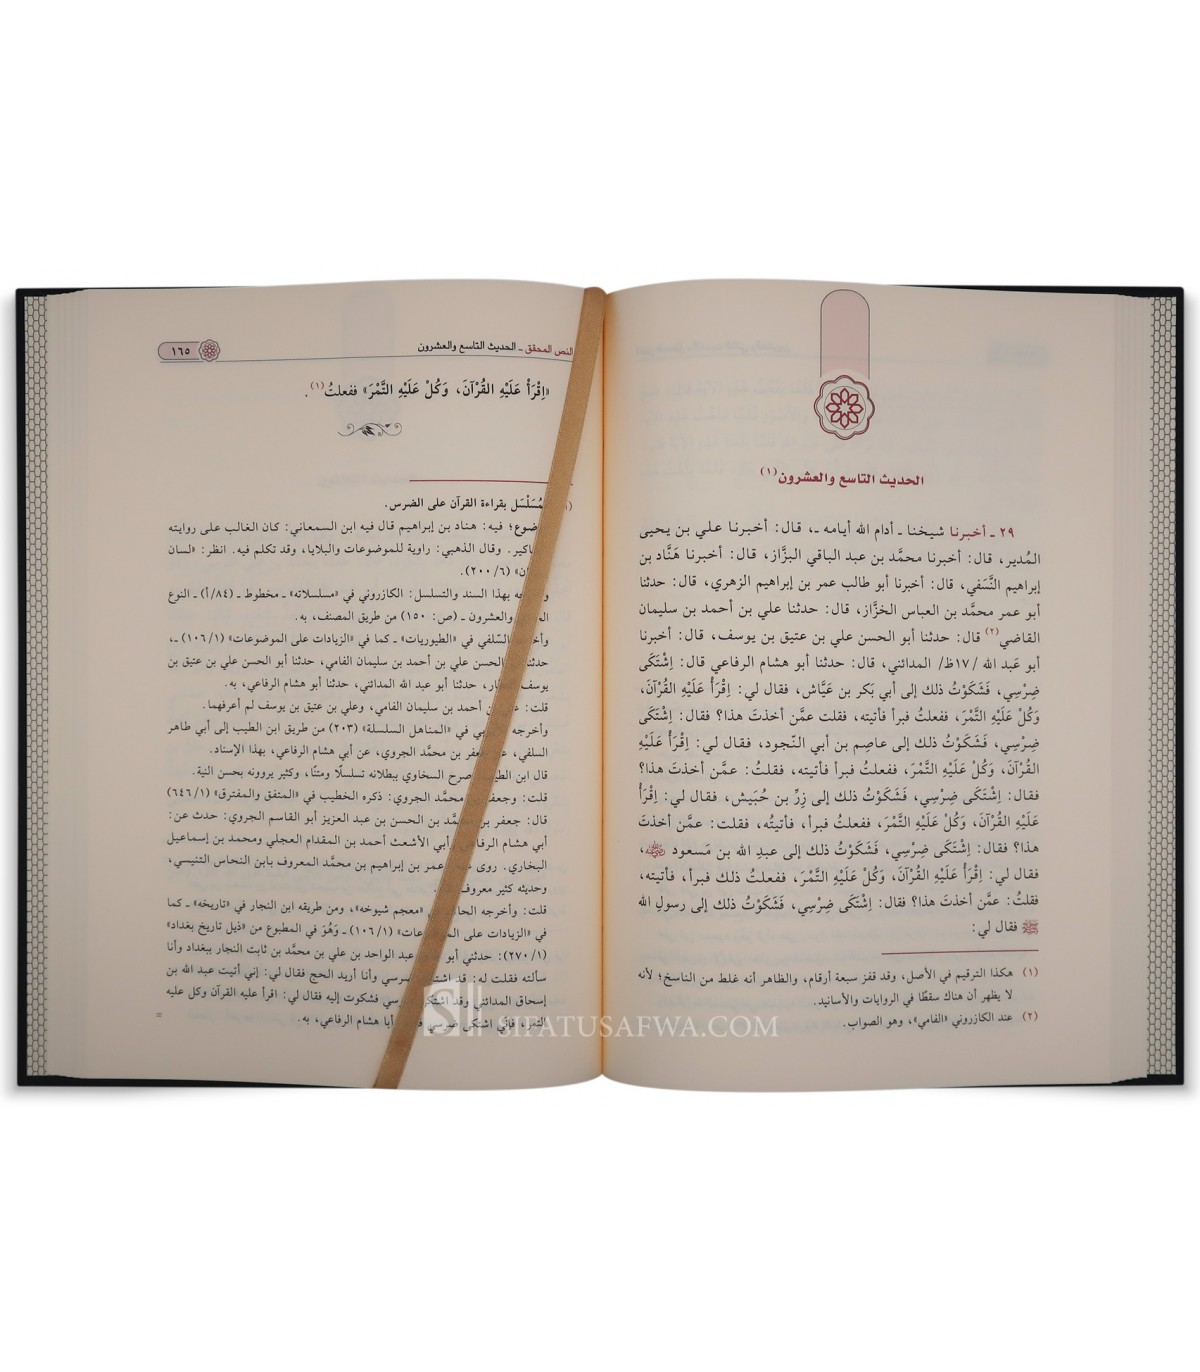 الحديث التاسع والعشرون(١)
٢٩ ـ أخبرنا شيخنا ـ أدام الله أيامه ـ، قال: أخبرنا علي بن يحيى
المُدير، قال: أخبرنا محمَّد بن عبد الباقي البزَّاز، قال: أخبرنا هَنَّاد بن
إبراهيم النَّسَفي، قال: أخبرنا أبو طالب عمر بن إبراهيم الزهري، قال: حدثنا
أبو عمر محمَّد بن العباس الخزَّاز، قال: حدثنا علي بن أحمد بن سليمان
القاضي(٢) قال: حدثنا أبو الحسن علي بن عتيق بن يوسف، قال: أخبرنا
أبو عَبد الله /١٧ظ/ المدائني، قال: حدثنا أبو هشام الرفاعي قال: اِشْتَكَى
ضِرْسِي، فَشَكَوْتُ ذلك إلى أبي بَكر بن عَيَّاش، فقال لي: اِقْرَأْ عَلَيْهِ القُرْآنَ،
وَكُلْ عَلَيْهِ التَّمْرَ، ففعلتُ فبرأ فأتيته، فقلت عمَّن أخذتَ هذا؟ فقال: اِشْتَكَى
ضِرْسِي، فَشَكَوْتُ ذلك إلى عاصِم بن أبي النّجود، فقال لي: اِقْرَأْ عَلَيْهِ
القُرْآنَ، وَكُلْ عَلَيْهِ التَّمْرَ، ففعلتُ فبرأ فأتيته، فقلتُ: عمَّن أخذتَ هذا؟
فقال: اِشْتَكَى ضِرْسِي، فَشَكَوْتُ ذلك إلى زِرِّ بن حُبَيش، فقال لي: اِقْرَأْ
عَلَيْهِ القُرْآنَ، وَكُلْ عَلَيْهِ التَّمْرَ، ففعلتُ فبرأ، فأتيتُه، فقلت: عمَّن أخذتَ
هذا؟ فقال: اِشْتَكَى ضِرْسِي، فَشَكَوْتُ ذلك إلى عبدِ الله بن مَسعود ﵁،
فقال لي: اِقْرَأْ عَلَيْهِ القُرْآنَ، وَكُلْ عَلَيْهِ التَّمْرَ، ففعلتُ ذلك فبرأ، فأتيته،
فقلتُ: عمَّن أخذتَ هذا؟ فقال: اِشْتَكَى ضِرْسِي، فَشَكَوْتُ ذلك إلى رسولِ الله
ﷺ فقال لي:
(١) هكذا الترقيم في الأصل، وقد قفز سبعة أرقام، والظاهر أنه غلط من الناسخ؛ لأنه
لا يظهر أن هناك سقطًا في الروايات والأسانيد.
(٢) عند الكازروني «الفامي»، وهو الصواب.
النص المحقق ـ الحديث التاسع والعشرون
١٦٥
«اِقْرَأْ عَلَيْهِ القُرْآنَ، وَكُلْ عَلَيْهِ التَّمْرَ» ففعلتُ(١).
بقراءة القرآن على الضرس.
فيه: هناد بن إبراهيم قال فيه ابن السمعاني: كان الغالب على روايته
وقال الذهبي: راوية للموضوعات والبلايا، وقد تكلم فيه. انظر: «لسان
(٦/٢٠٠).
بهذا السند والتسلسل: الكازروني في «مسلسلاته» ـ مخطوط ـ (٨٤/أ) ـ النوع
والعشرون ـ (ص: ١٥٠) من طريق المصنف، به.
السِّلفي في «الطيوريات» ـ كما في «الزيادات على الموضوعات» (١/١٠٦) ـ،
حدثنا الحسن علي بن أحمد بن سليمان الفامي، حدثنا أبو الحسن علي بن عتيق بن
يوسف حدثنا أبو عبد الله المدائني، حدثنا أبو هشام الرفاعي، به.
قلت: بن أحمد بن سليمان الفامي، وعلي بن عتيق بن يوسف لم أعرفهما.
وأخرجه في «المناهل السلسلة» (٢٠٣) من طريق ابن الطيب إلى أبي طاهر
السلفي، جعفر بن محمَّد الجروي، عن أبي هشام الرفاعي، بهذا الإسناد.
قال ابن صرح السخاوي ببطلانه تسلسلًا ومتنًا، وكثير يروونه بحسن النية.
قلت: وجعفر محمَّد الجروي: ذكره الخطيب في «المتفق والمفترق» (١/٦٤٦)
قال: جعفر بن محمَّد بن الحسن بن عبد العزيز أبو القاسم الجروي: حدث عن:
أبي هشام وأبي الأشعث أحمد بن المقدام العجلي ومحمد بن إسماعيل
البخاري. روى عمر بن إبراهيم بن محمَّد المعروف بابن النحاس التنيسي،
وحديثه كثير معروف
قلت: وأخرجه «معجم شيوخه»، ومن طريقه ابن النجار في «تاريخه» ـ كما
في «الزيادات على (١/١٠٦) ـ وَهُوَ في المطبوع من «ذيل تاريخ بغداد»
(١/٢٧٠): حدثني أبو عبد الواحد بن علي بن محمَّد بن ثابت النجار ببغداد وأنا
سألته فقلت له: قد وأنا أريد الحج فقال لي: إني أتيت عبد الله بن
إسحاق المدائني وقد فشكوت إليه فقال لي: اقرأ عليه القرآن وكل عليه
التمر، فإني اشتكى أبا هشام الرفاعي، به.
=
SIFATUSAFWA.COM